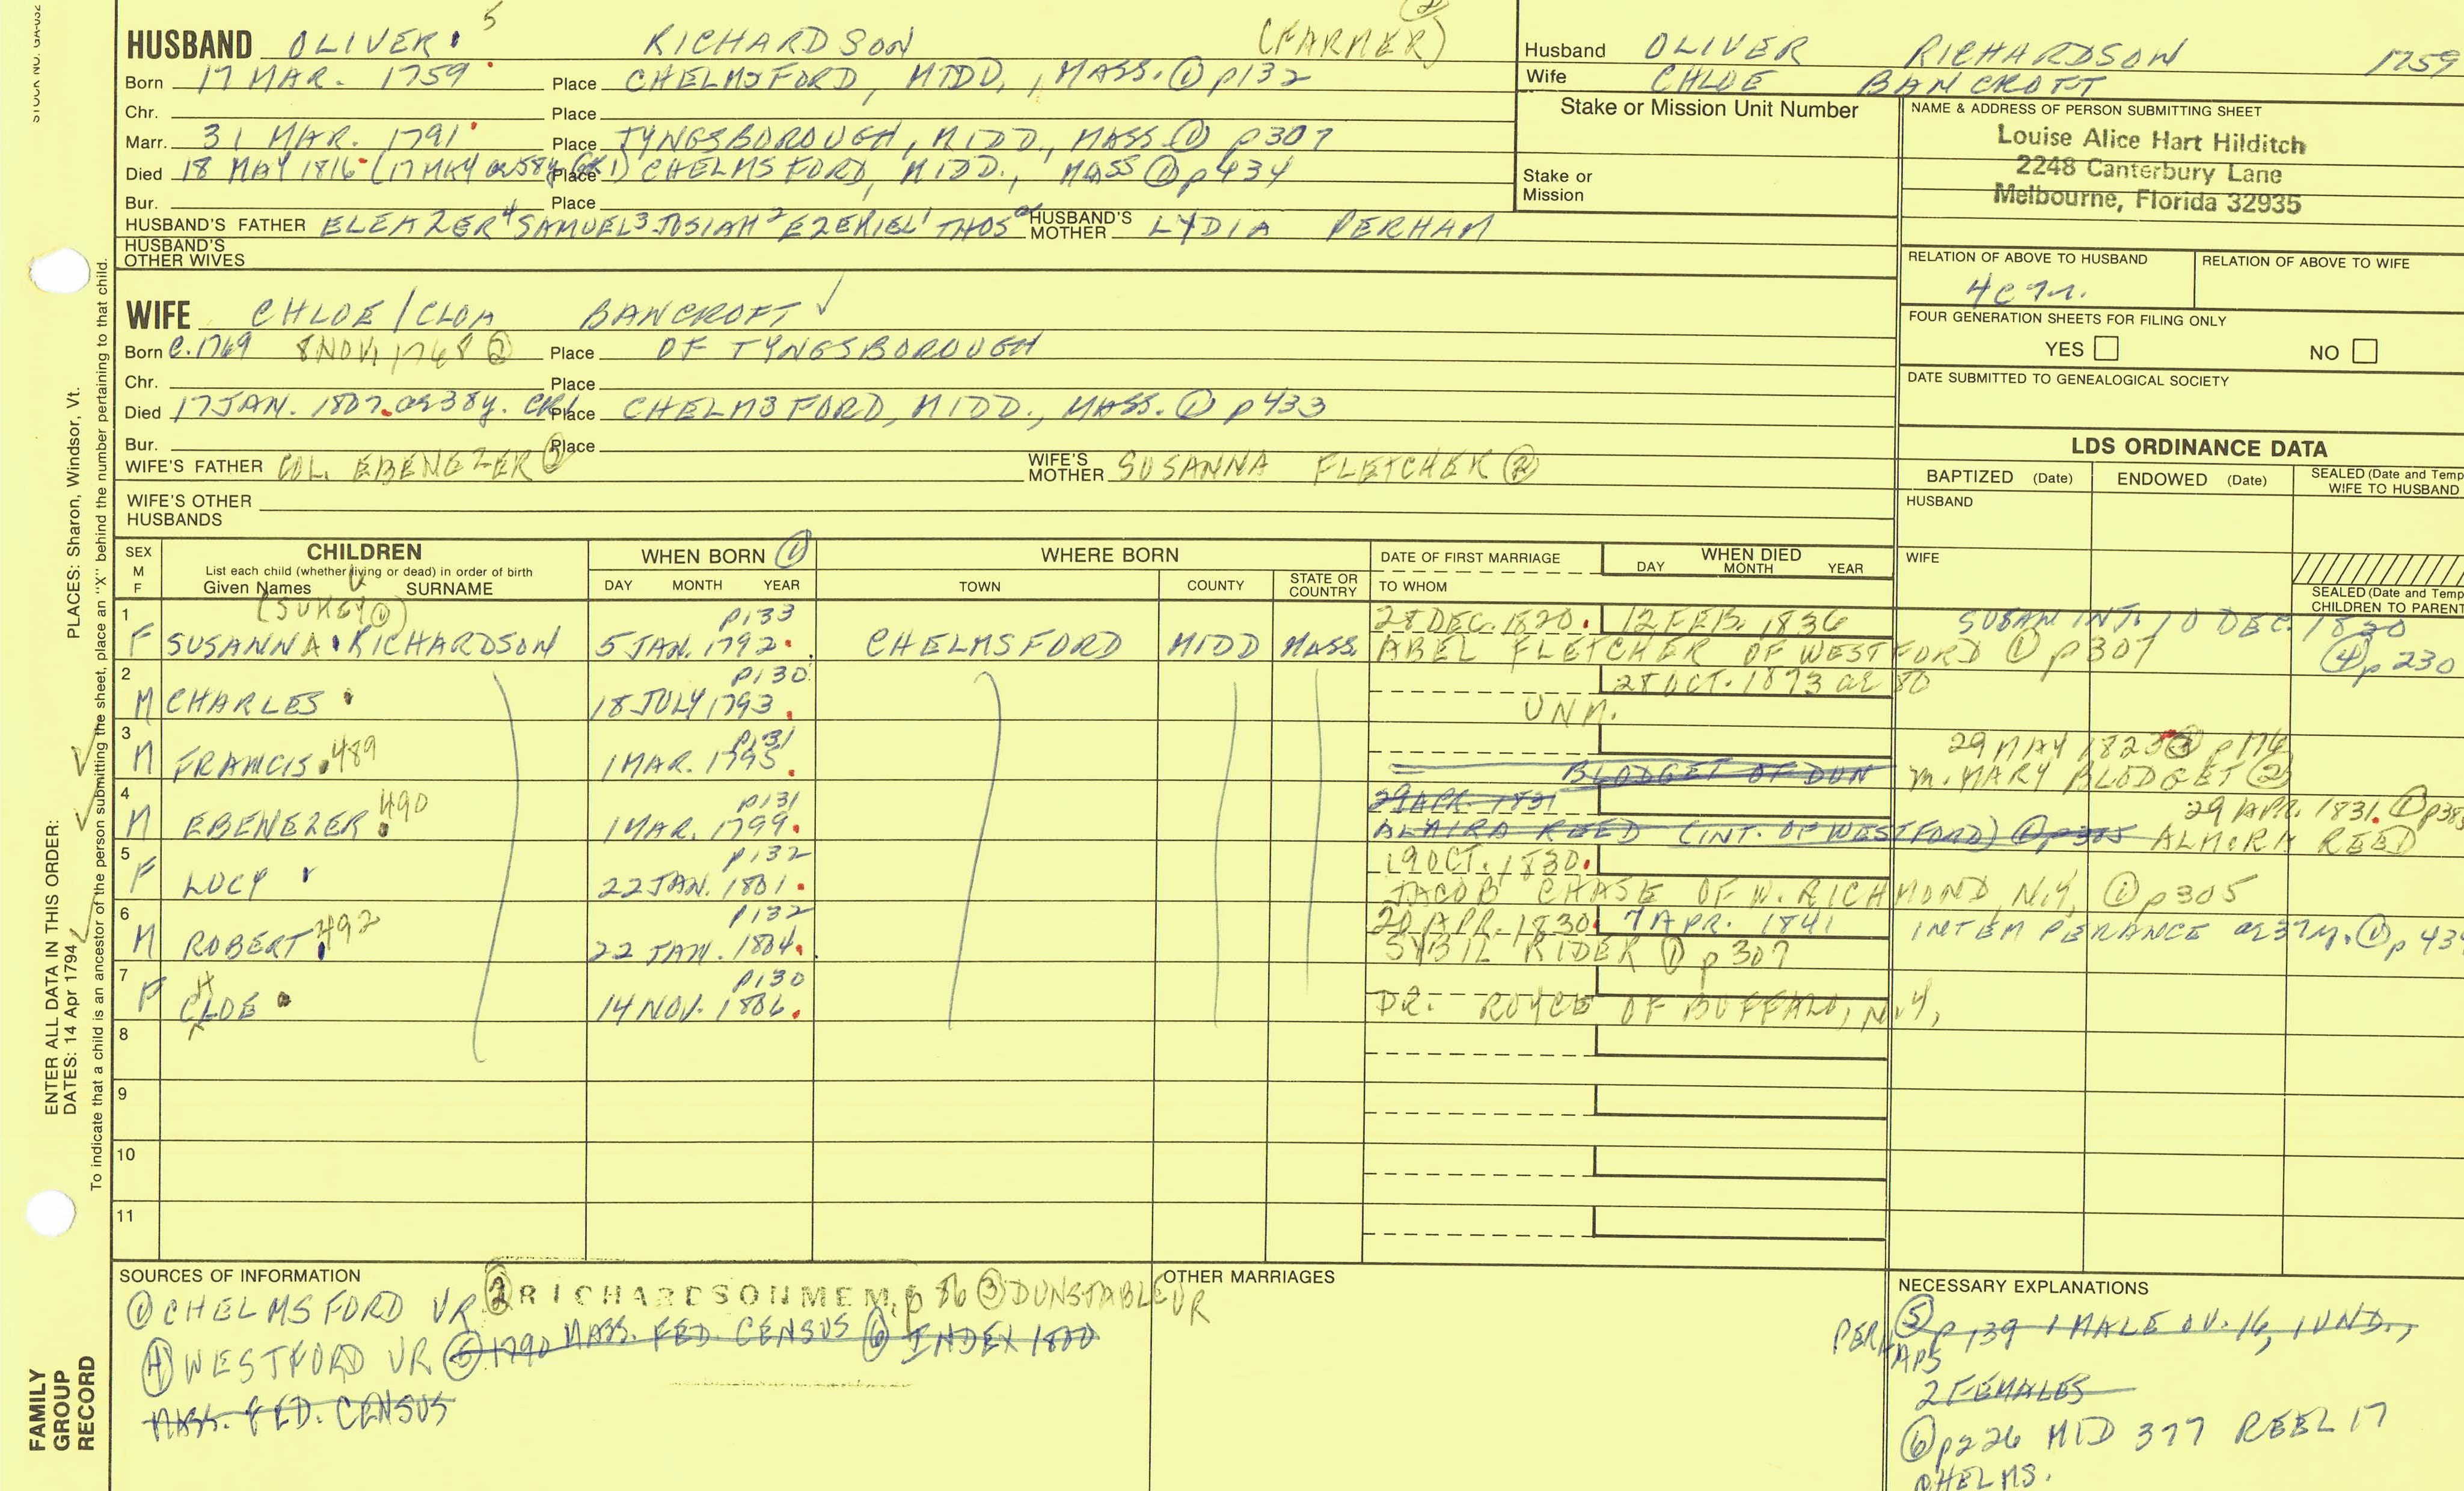 HUSBAND OLIVER 5 RICHARDSON (FARMER)
Born 17 MAR. 1759 Place CHELMSFORD, MIDD., MASS. ① p132
Chr. Place
Marr. 31 MAR. 1791 Place TYNGSBOROUGH, MIDD., MASS ① p307
Died 18 MAY 1816 (17 MAY ae 58y GR1) Place CHELMSFORD, MIDD., MASS ① p434
Bur. Place
HUSBAND'S FATHER ELEAZER 4 SAMUEL 3 JOSIAH 2 EZEKIEL 1 THOS HUSBAND'S MOTHER LYDIA PERHAM
HUSBAND'S OTHER WIVES
WIFE CHLOE/CLOA BANCROFT ✓
Born C.1769 8 NOV. 1768 ② Place OF TYNGSBOROUGH
Chr. Place
Died 17 JAN. 1807. ae 38y. Place CHELMSFORD, MIDD., MASS. ① p433
Bur. Place
WIFE'S FATHER COL. EBENEZER ② WIFE'S MOTHER SUSANNA FLETCHER ②
WIFE'S OTHER HUSBANDS
Husband OLIVER RICHARDSON 1759
Wife CHLOE BANCROFT
Stake or Mission Unit Number
Stake or Mission
NAME & ADDRESS OF PERSON SUBMITTING SHEET
Louise Alice Hart Hilditch
2248 Canterbury Lane
Melbourne, Florida 32935
RELATION OF ABOVE TO HUSBAND RELATION OF ABOVE TO WIFE
FOUR GENERATION SHEETS FOR FILING ONLY
YES NO
DATE SUBMITTED TO GENEALOGICAL SOCIETY
LDS ORDINANCE DATA
BAPTIZED (Date) ENDOWED (Date) SEALED (Date and Temp
WIFE TO HUSBAND
HUSBAND
WIFE
SEALED (Date and Temp
CHILDREN TO PARENT
SEX M F
CHILDREN
List each child (whether living or dead) in order of birth
Given Names SURNAME
WHEN BORN ①
DAY MONTH YEAR
WHERE BORN
TOWN COUNTY STATE OR COUNTRY
DATE OF FIRST MARRIAGE
TO WHOM
WHEN DIED
DAY MONTH YEAR
1 (SUKEY ①) p133 28 DEC. 1820. 12 FEB. 1836 SUSAN INT. 10 DEC. 1820
F SUSANNA RICHARDSON 5 JAN. 1792 CHELMSFORD MIDD MASS. ABEL FLETCHER OF WESTFORD ① p307 ④ p 230
2 p130 28 OCT. 1873 ae 80
M CHARLES 18 JULY 1793 UNM.
3 p131 29 MAY 1823 ③ p176
M FRANCIS 489 1 MAR. 1795 BLODGET OF DUN m. MARY BLODGET ②
4 p131 29 APR. 1831 29 APR. 1831. ① p385
M EBENEZER 490 1 MAR. 1799 ALMIRA REED (INT. OF WESTFORD) ① p385 ALMIRA REED
5 p132 19 OCT. 1830
F LUCY 22 JAN. 1801 JACOB CHASE OF W. RICHMOND, N.Y. ① p305
6 p132 20 APR. 1830 7 APR. 1841 INTEMPERANCE ae 37y. ① p 434
M ROBERT 492 22 JAN. 1804 SYBIL RIDER ① p307
7 p130
F CHLOE 14 NOV. 1806 DR. ROYCE OF BUFFALO, N.Y.
8
9
10
11
SOURCES OF INFORMATION
① CHELMSFORD VR ② RICHARDSON MEM. p 86 ③ DUNSTABLE VR
④ WESTFORD VR ⑤ 1790 MASS. FED. CENSUS ⑥ INDEX 1800
MASS. FED. CENSUS
OTHER MARRIAGES
NECESSARY EXPLANATIONS
PERHAPS ⑤ p 139 1 MALE OV. 16, 1 UND.,
2 FEMALES
⑥ p226 MID 377 REEL 17
CHELMS.
PLACES: Sharon, Windsor, Vt.
ENTER ALL DATA IN THIS ORDER:
DATES: 14 Apr 1794
To indicate that a child is an ancestor of the person submitting the sheet, place an "X" behind the number pertaining to that child.
FAMILY
GROUP
RECORD